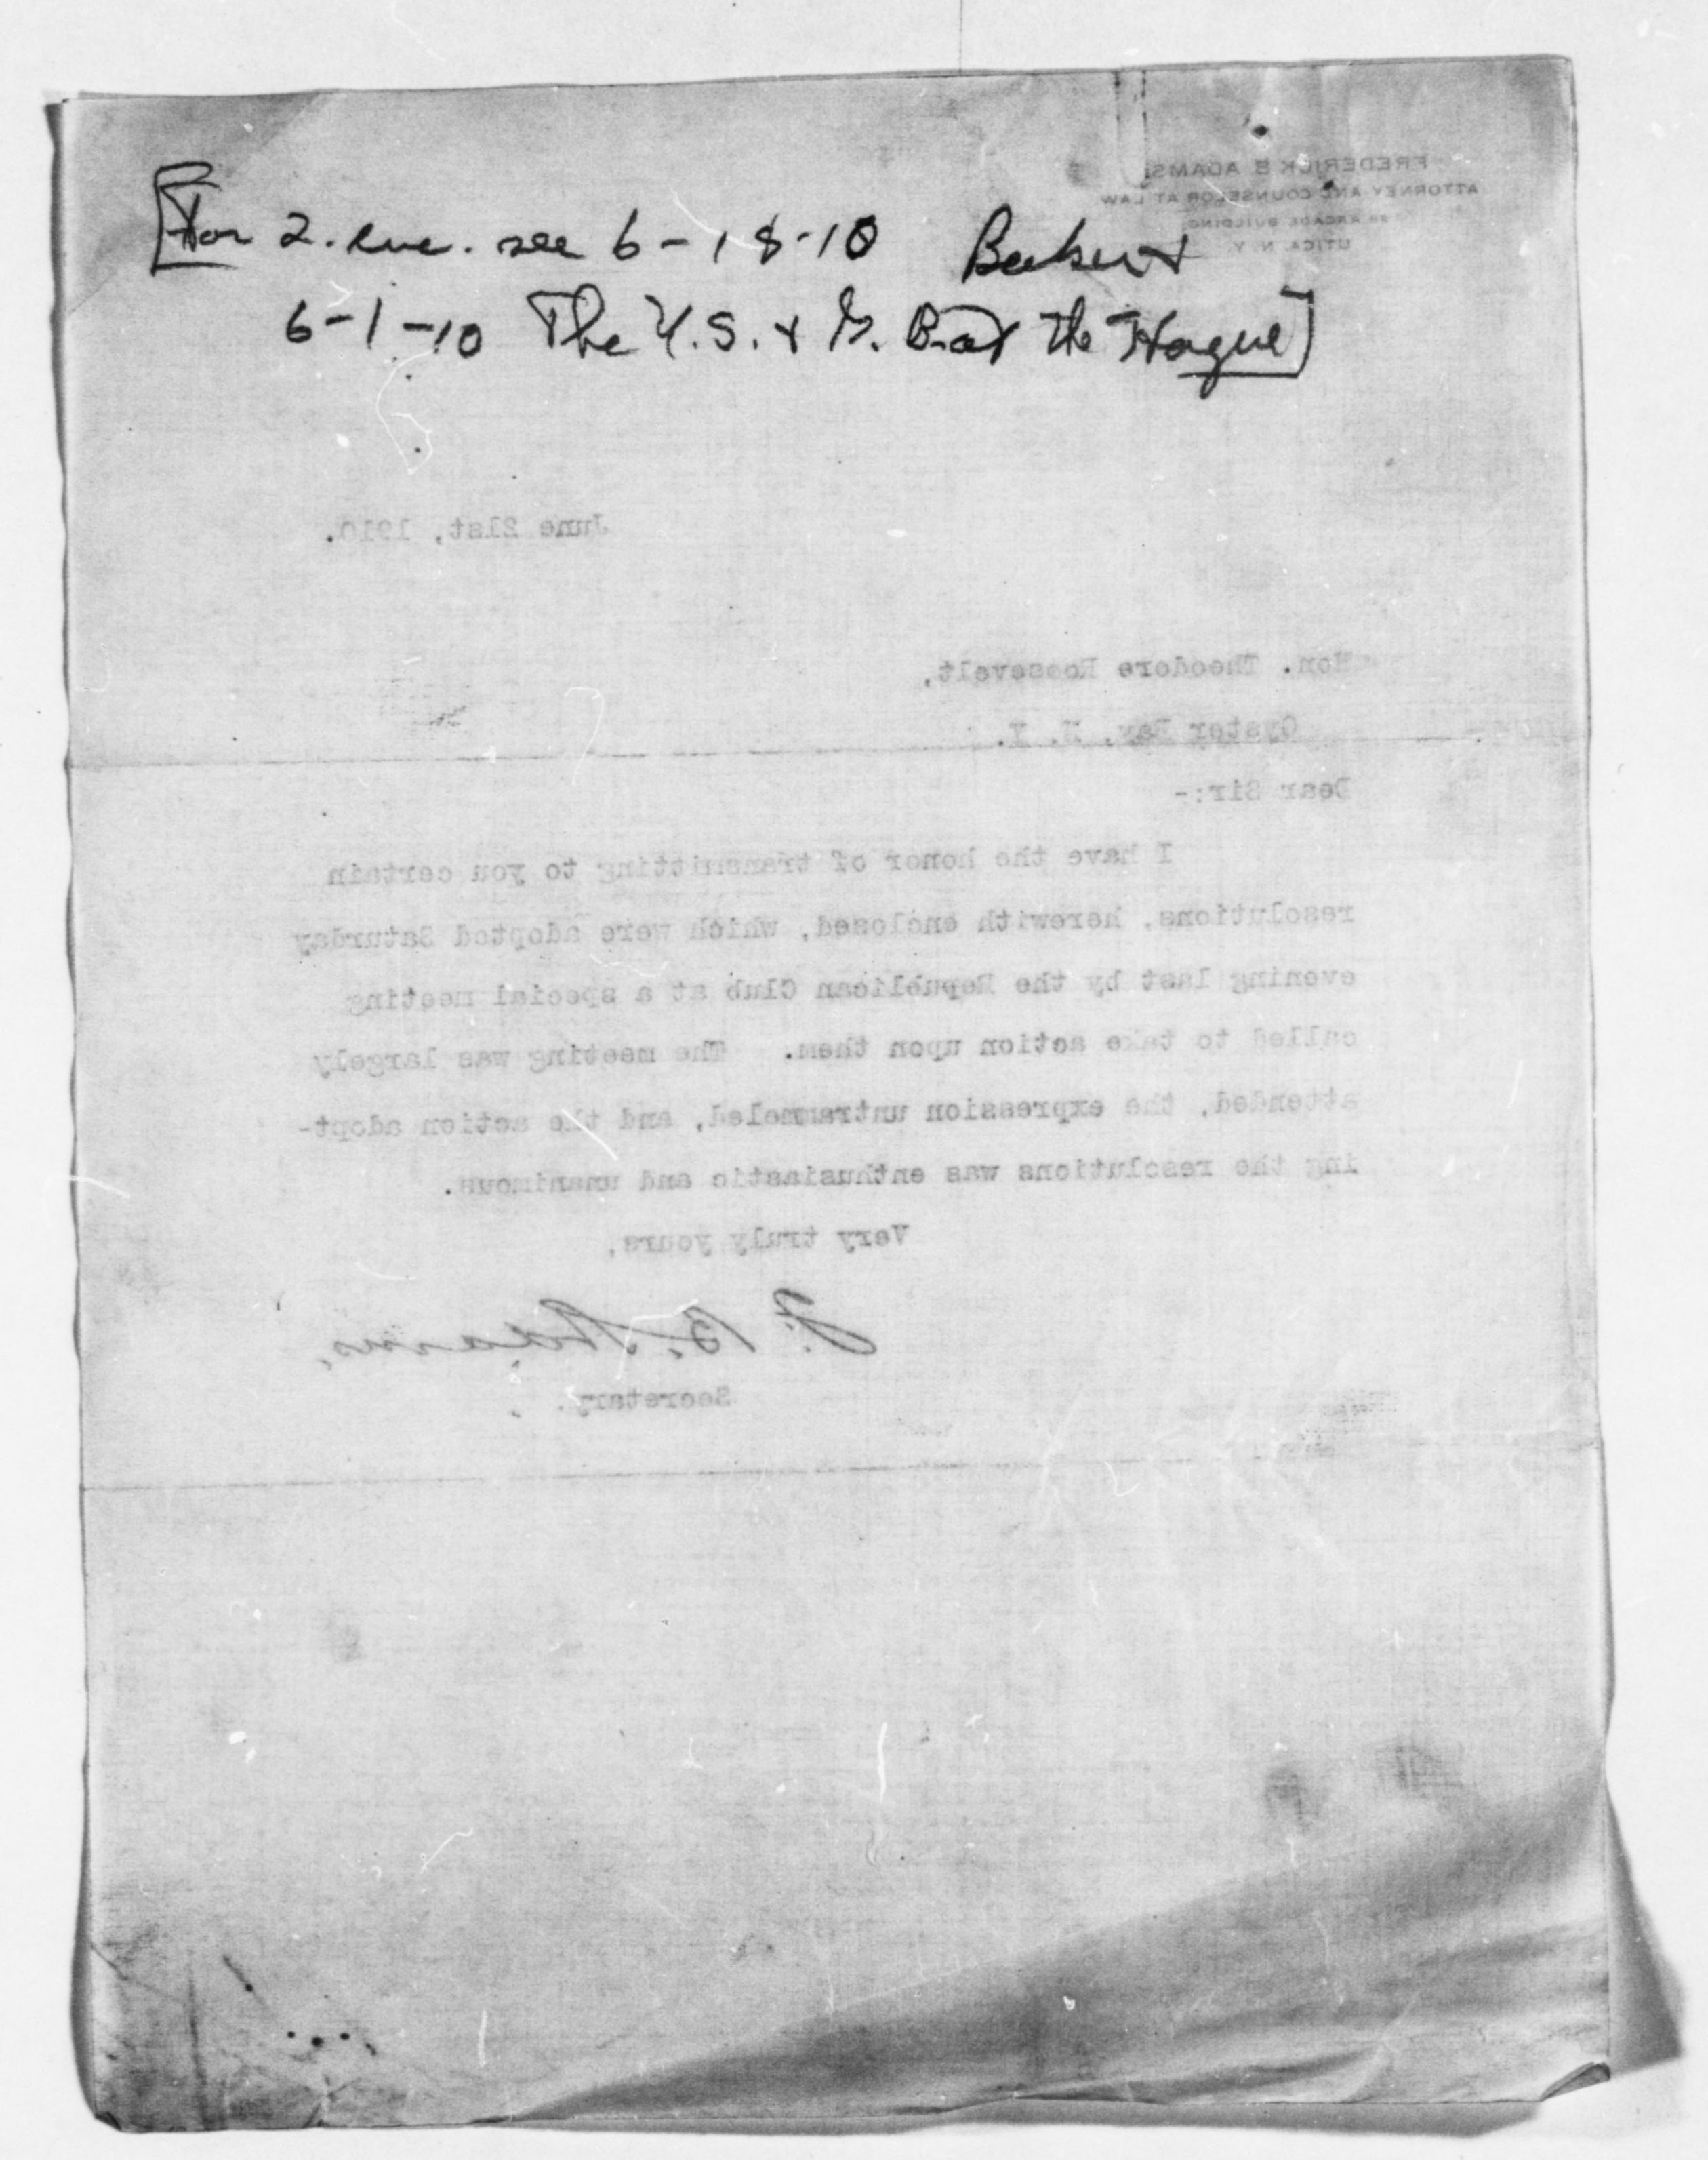 [For 2. enc. see 6-18-10
6-1-10 The U.S. & G. B. at the Hague]
FREDERICK B ADAMS
ATTORNEY AND COUNSELOR AT LAW
ARCADE BUILDING
UTICA, N. Y.
June 21st, 1910.
Hon. Theodore Roosevelt,
Oyster Bay, N. Y.
Dear Sir:-
I have the honor of transmitting to you certain
resolutions, herewith enclosed, which were adopted Saturday
evening last by the Republican Club at a special meeting
called to take action upon them. The meeting was largely
attended, the expression untrammeled, and the action adopt-
ing the resolutions was enthusiastic and unanimous.
Very truly yours,
F. B. Adams.
Secretary.